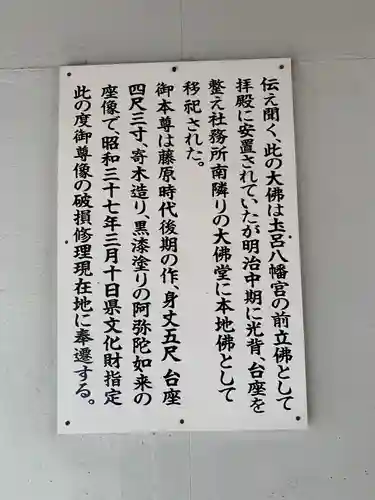 伝え聞く、此の大佛は土呂八幡宮の前立佛として
拝殿に安置されていたが明治中期に光背、台座を
整え社務所南隣りの大佛堂に本地佛として
移祀された。
御本尊は藤原時代後期の作、身丈五尺 台座
四尺三寸、寄木造り、黒漆塗りの阿弥陀如来の
座像で、昭和三十七年三月十日県文化財指定
此の度御尊像の破損修理現在地に奉遷する。